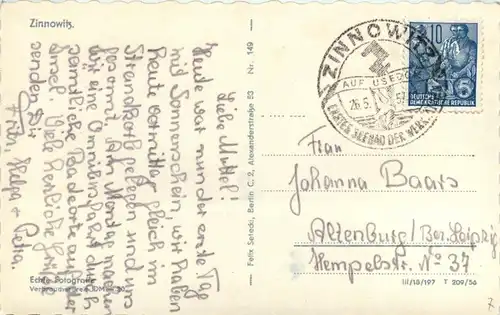 Zinnowitz.
Liebe Mutter!
Heute war nun der erste Tag
mit Sonnenschein, wir haben
heute vormittag gleich im
Strandkorb gelegen und uns
gesonnt. Am Montag machen
wir eine Omnibusfahrt durch
sämtliche Badeorte auf der
Insel. Viele herzliche Grüße
senden Dir
Fritz, Helga + Petra.
Echte Fotografie
Felix Setecki, Berlin C. 2, Alexanderstraße 53 Nr. 149
ZINNOWITZ
AUF USEDOM
26.5. 57
SEEBAD DER WERK
10
DEUTSCHE
DEMOKRATISCHE REPUBLIK
5
Frau
Johanna Baars
Altenburg/Bez. Leipzig
Hempelstr. No 37
III/18/197 T 209/56